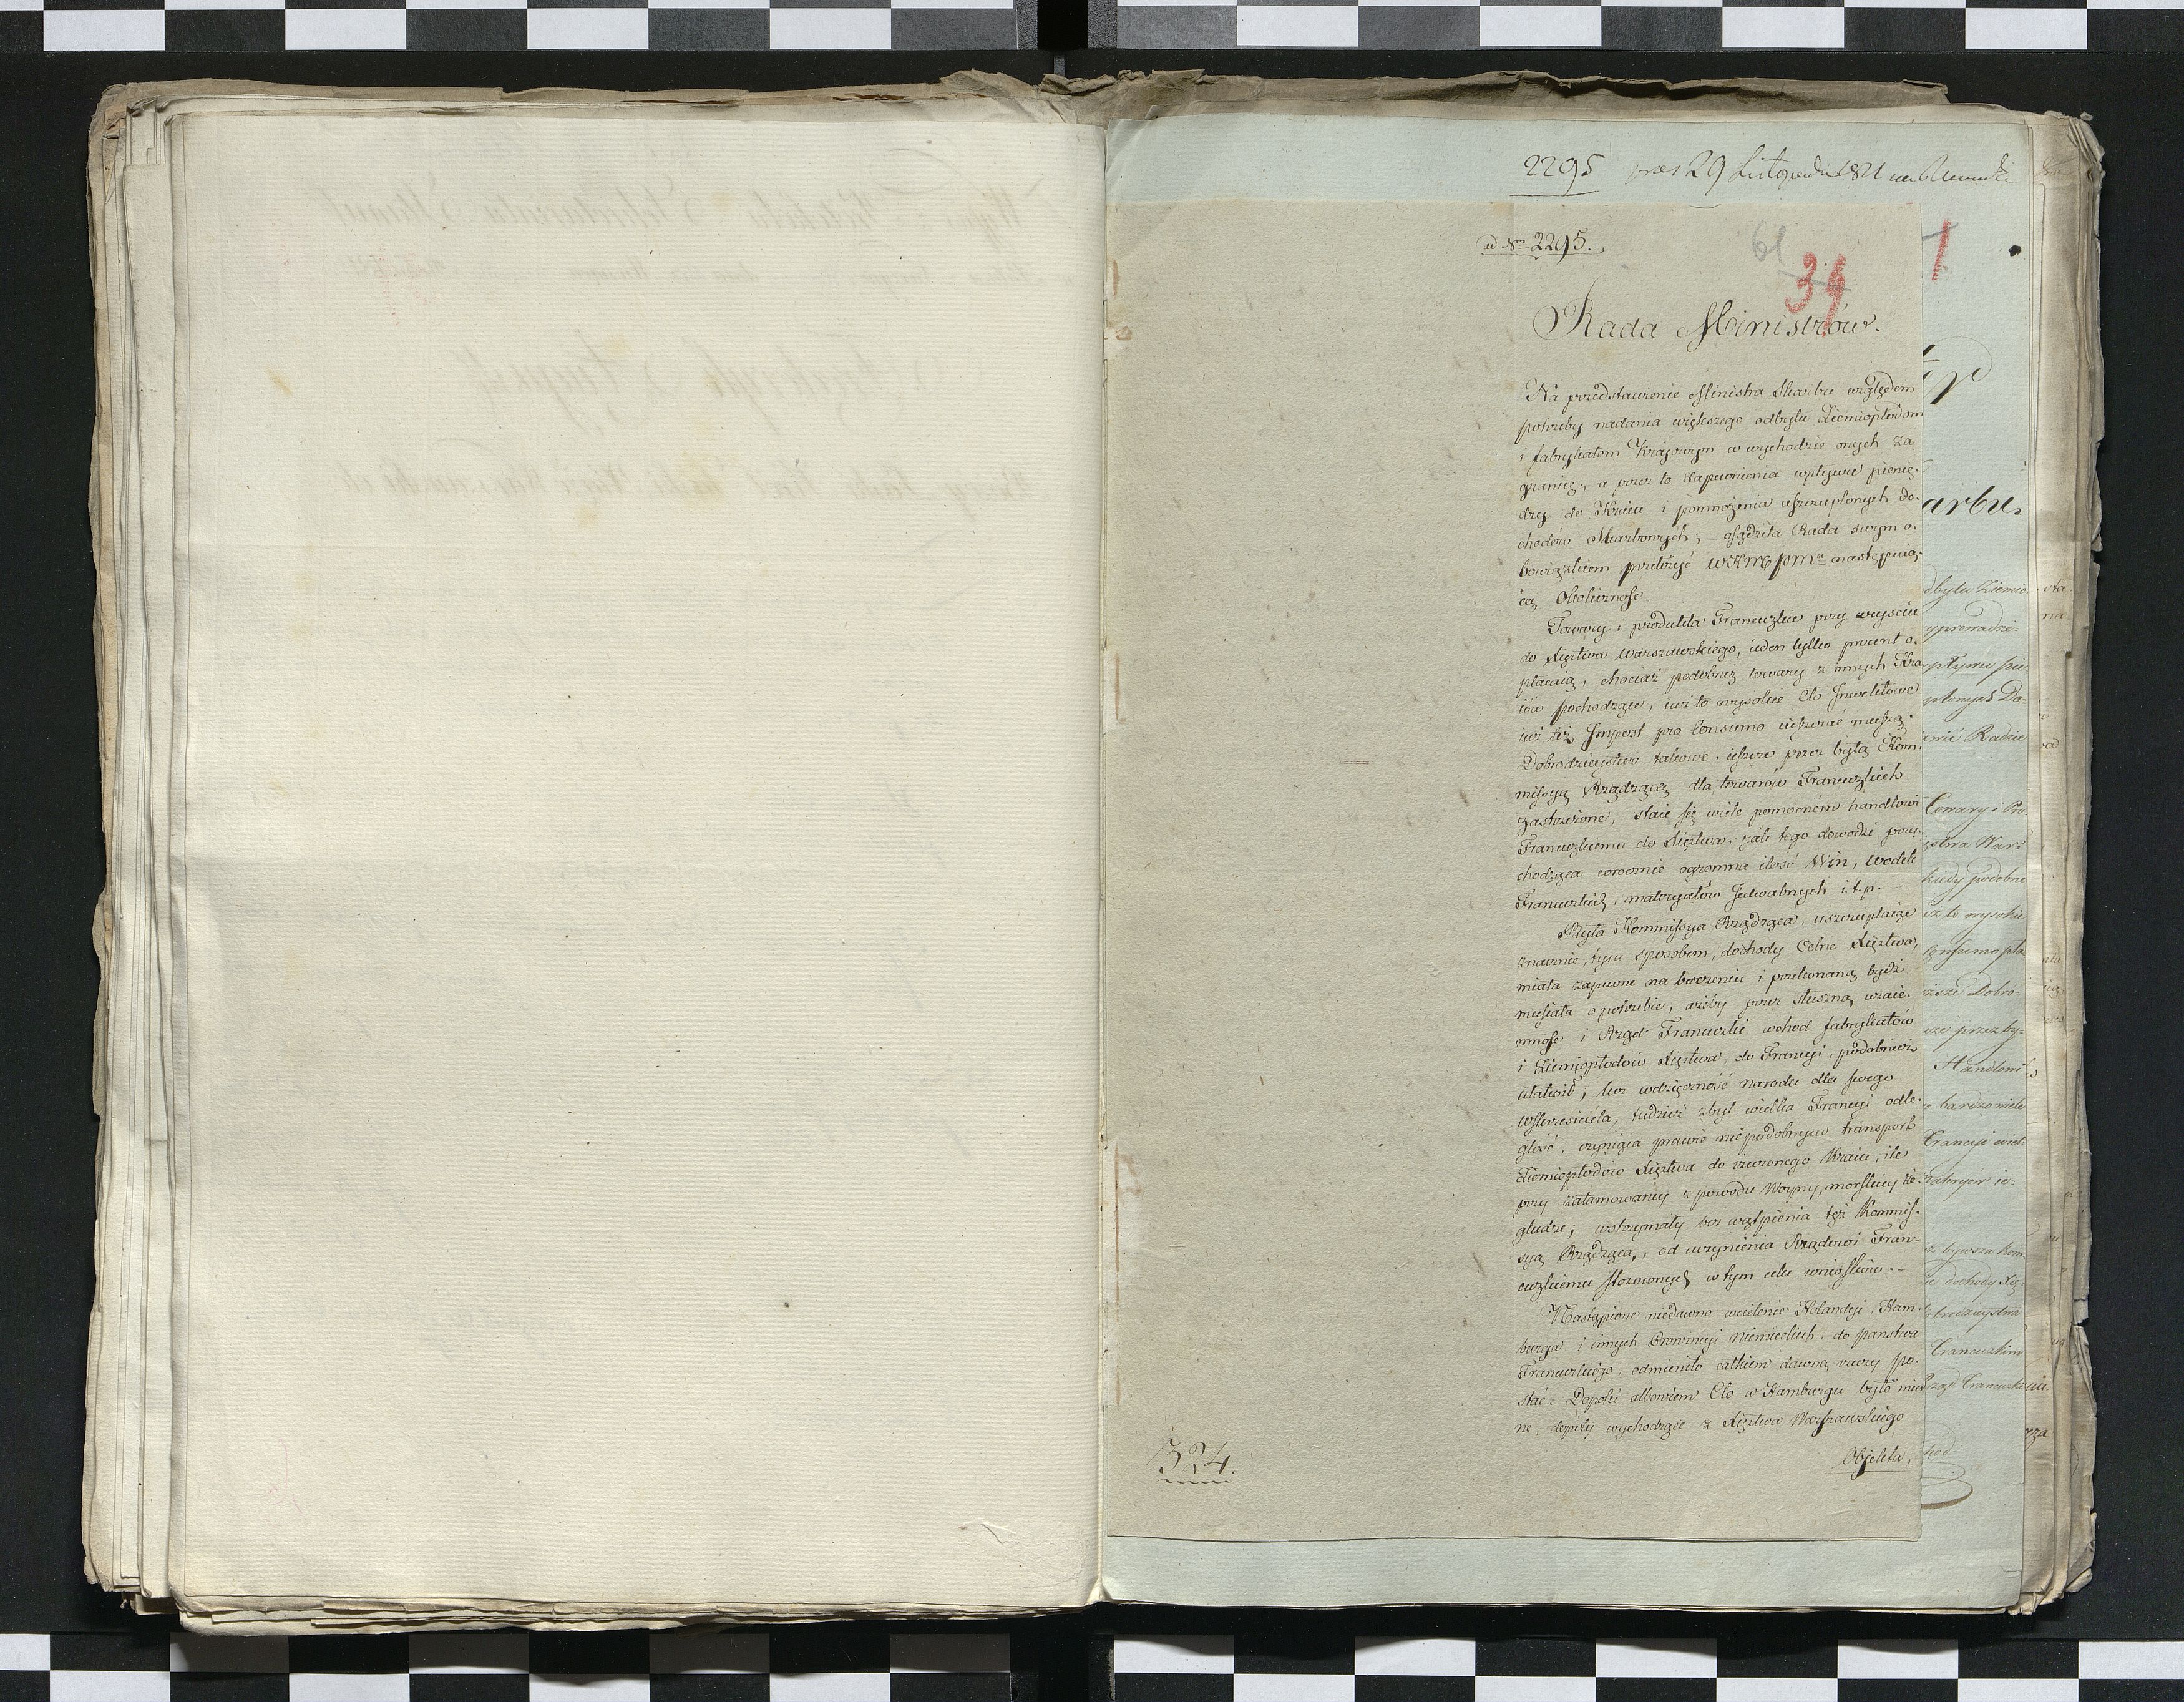 2295 praes 29 Listopada 1811
ad Nrm 2295.
61
34
1
Rada Ministrów.
Na przedstawienie Ministra Skarbu względem
potrzeby nadania większego odbytu Ziemiopłodom
i fabrykatom Krajowym w wychodzie onych za
granicę, a przez to zapewnienia wpływu pienię-
dzy do Kraiu i pomnożenia uszczuplonych do-
chodów Skarbowych; – osądziła Rada swym o-
bowiązkiem przełożyć WKMC PMu następuią-
cą Okoliczność.
Towary i produkta Francuzkie przy weysciu
do Xięztwa Warszawskiego, ieden tylko procent o-
płacaią, chociaż podobneż towary z innych Kra-
iów pochodzące, iuż to wysokie Cło
iuż też Impost pro Consumo uiszczać muszą.
Dobrodzieystwo takowe, ieszcze przez byłą Kom-
missyą Rządzącą dla towarów Francuzkich
zastrzeżone, staie się wiele pomocném handlowi
Francuzkiemu do Xięztwa, iak tego dowodzi przy-
chodząca corocznie ogromna ilość Win, Wodek
Francuzkich, materyałów Jedwabnych i.t.p. –
Była Kommissya Rządząca, uszczuplaiąc
znacznie, tym sposobem, dochody Celne Xięztwa,
miała zapewne na baczeniu i przekonaną bydź
musiała o potrzebie, ażeby przez słuszną wzaie-
mność i Rząd Francuzki wchod fabrykatów
i Ziemiopłodów Xięztwa, do Francyi, podobnież
ułatwił; lecz wdzięczność Narodu dla swego
Wskrzesiciela, tudzież zbyt wielka Francyi odle-
głość, czyniąca prawie niepodobnym transport
Ziemiopłodów Xięztwa do rzeczonego Kraiu, ile
przy zatamowaney z powodu Woyny, morskiey że-
gludze; wstrzymały bez wątpienia też Kommis-
syą Rządzącą, od uczynienia Rządowi Fran-
cuzkiemu stosownych w tym celu wniosków. –
Nastąpione niedawno wcielenie Holandyi, Ham-
burga i innych Prowincyi Niemieckich do panstwa
Francuzkiego, odmieniło całkiem dawną rzeczy po-
stać: Dopóki albowiem Cło w Hamburgu było mier-
ne, dopóty wychodzące z Xięztwa Warszawskiego
Objekta,
324.
arbu.
dbytu Ziemio-
yprowadze-
pływu pie
plonych Do-
Radzie
Towary i Pro
ztwa Warz
kiedy podobne
iż to wysokie
onsumo pła
ższe Dobro-
cze przez by-
Handlowi
bardzo wiele
Francyi wiel-
ateryow ie-
bywsza Kom
dochody Xię-
brodzieystwa
Francuzkim
Rząd Francuzki